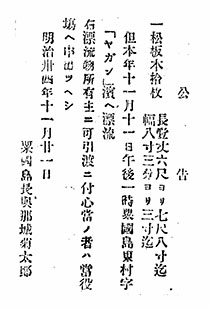 公告
一松板木拾枚 長壹丈六尺ヨリ七尺八寸迄
幅八寸三分ヨリ三寸迄
但本年十一月十一日午後一時粟國島東村字
「ヤガン」濱ヘ漂流
右漂流物所有主ニ可引渡ニ付心當ノ者ハ當役
場ヘ申出ツヘシ
明治卅四年十一月廿一日
粟國島長與那城菊太郎